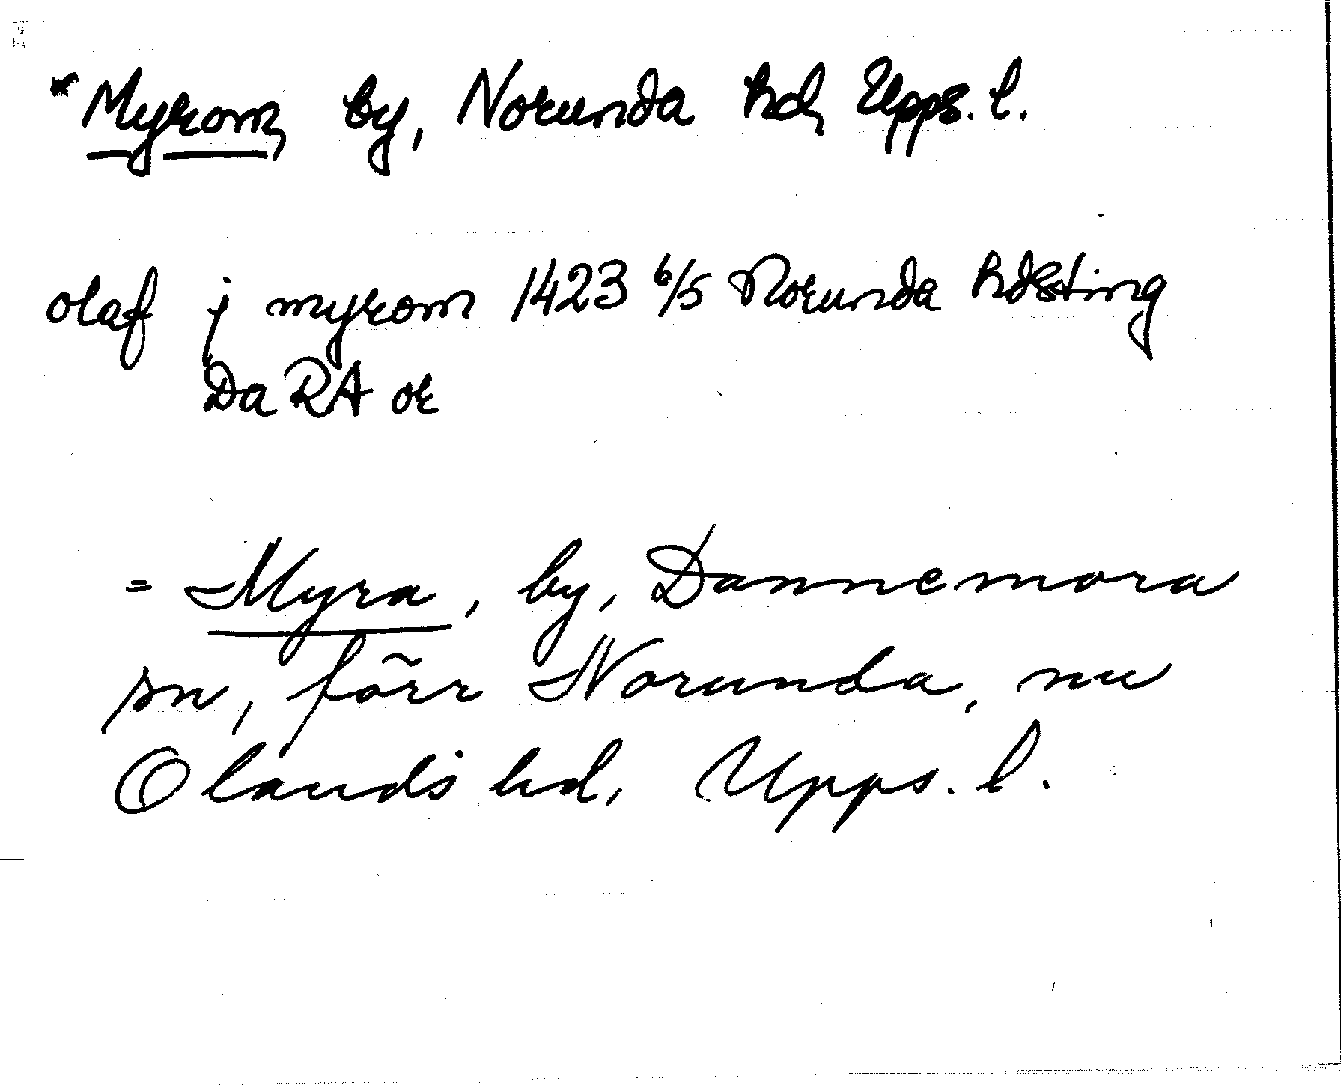 *Myrom, by, Norunda hd, Upps. l.
olaf j myrom 1423 6/5 Norunda hdsting
Da RA or
= Myra, by, Dannemora
sn, förr Norunda, nu
Olands hd, Upps. l.